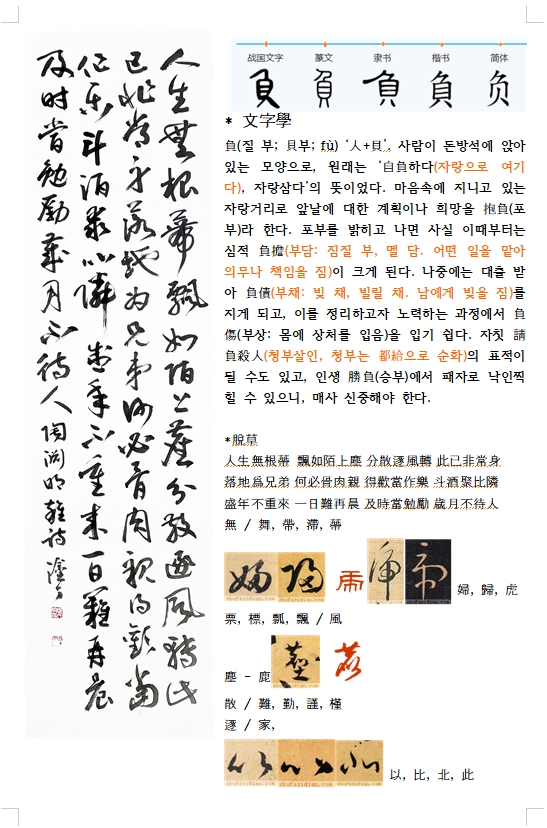 人生無根蔕飄如陌上塵分散逐風轉此
已非常身落地为兄弟何必骨肉親得歡當
作乐斗酒聚比隣盛年不重来一日難再晨
及时當勉勵歲月不待人 陶淵明雜詩
战国文字 篆文 隶书 楷书 简体
負 負 負 負 负
* 文字學
負(질 부; 貝부; fù) ‘人+貝’. 사람이 돈방석에 앉아
있는 모양으로, 원래는 ‘自負하다(자랑으로 여기
다), 자랑삼다’의 뜻이었다. 마음속에 지니고 있는
자랑거리로 앞날에 대한 계획이나 희망을 抱負(포
부)라 한다. 포부를 밝히고 나면 사실 이때부터는
심적 負擔(부담: 짐질 부, 멜 담. 어떤 일을 맡아
의무나 책임을 짐)이 크게 된다. 나중에는 대출 받
아 負債(부채: 빚 채, 빌릴 채. 남에게 빚을 짐)를
지게 되고, 이를 정리하고자 노력하는 과정에서 負
傷(부상: 몸에 상처를 입음)을 입기 쉽다. 자칫 請
負殺人(청부살인, 청부는 都給으로 순화)의 표적이
될 수도 있고, 인생 勝負(승부)에서 패자로 낙인찍
힐 수 있으니, 매사 신중해야 한다.
*脫草
人生無根蔕 飄如陌上塵 分散逐風轉 此已非常身
落地爲兄弟 何必骨肉親 得歡當作樂 斗酒聚比隣
盛年不重來 一日難再晨 及時當勉勵 歲月不待人
無 / 舞, 帶, 滯, 蔕
婦 歸 虎 虎 帚 婦, 歸, 虎
票, 標, 瓢, 飄 / 風
塵 - 鹿
散 / 難, 勤, 謹, 槿
逐 / 家,
以 比 北 以, 比, 北, 此